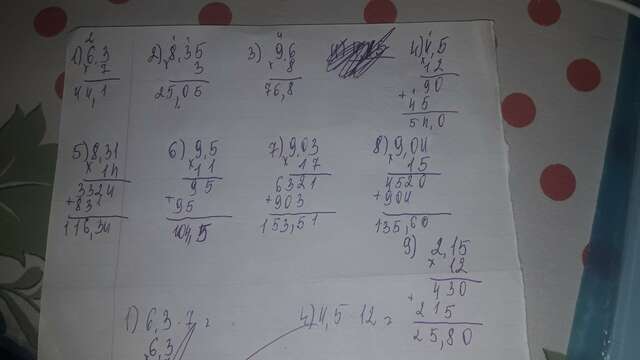 2
1) 6,3
× 7
44,1
2) 8,35
× 3
25,05
4
3) 9,6
× 8
76,8
4) 4,5
× 12
90
+ 45
54,0
5) 8,31
× 14
3324
+ 831
116,34
6) 9,5
× 11
95
+ 95
104,5
7) 9,03
× 17
6321
+ 903
153,51
8) 9,04
× 15
4520
+ 904
135,60
9) 2,15
× 12
430
+ 215
25,80
1) 6,3 · 7 =
6,3
4) 4,5 · 12 =